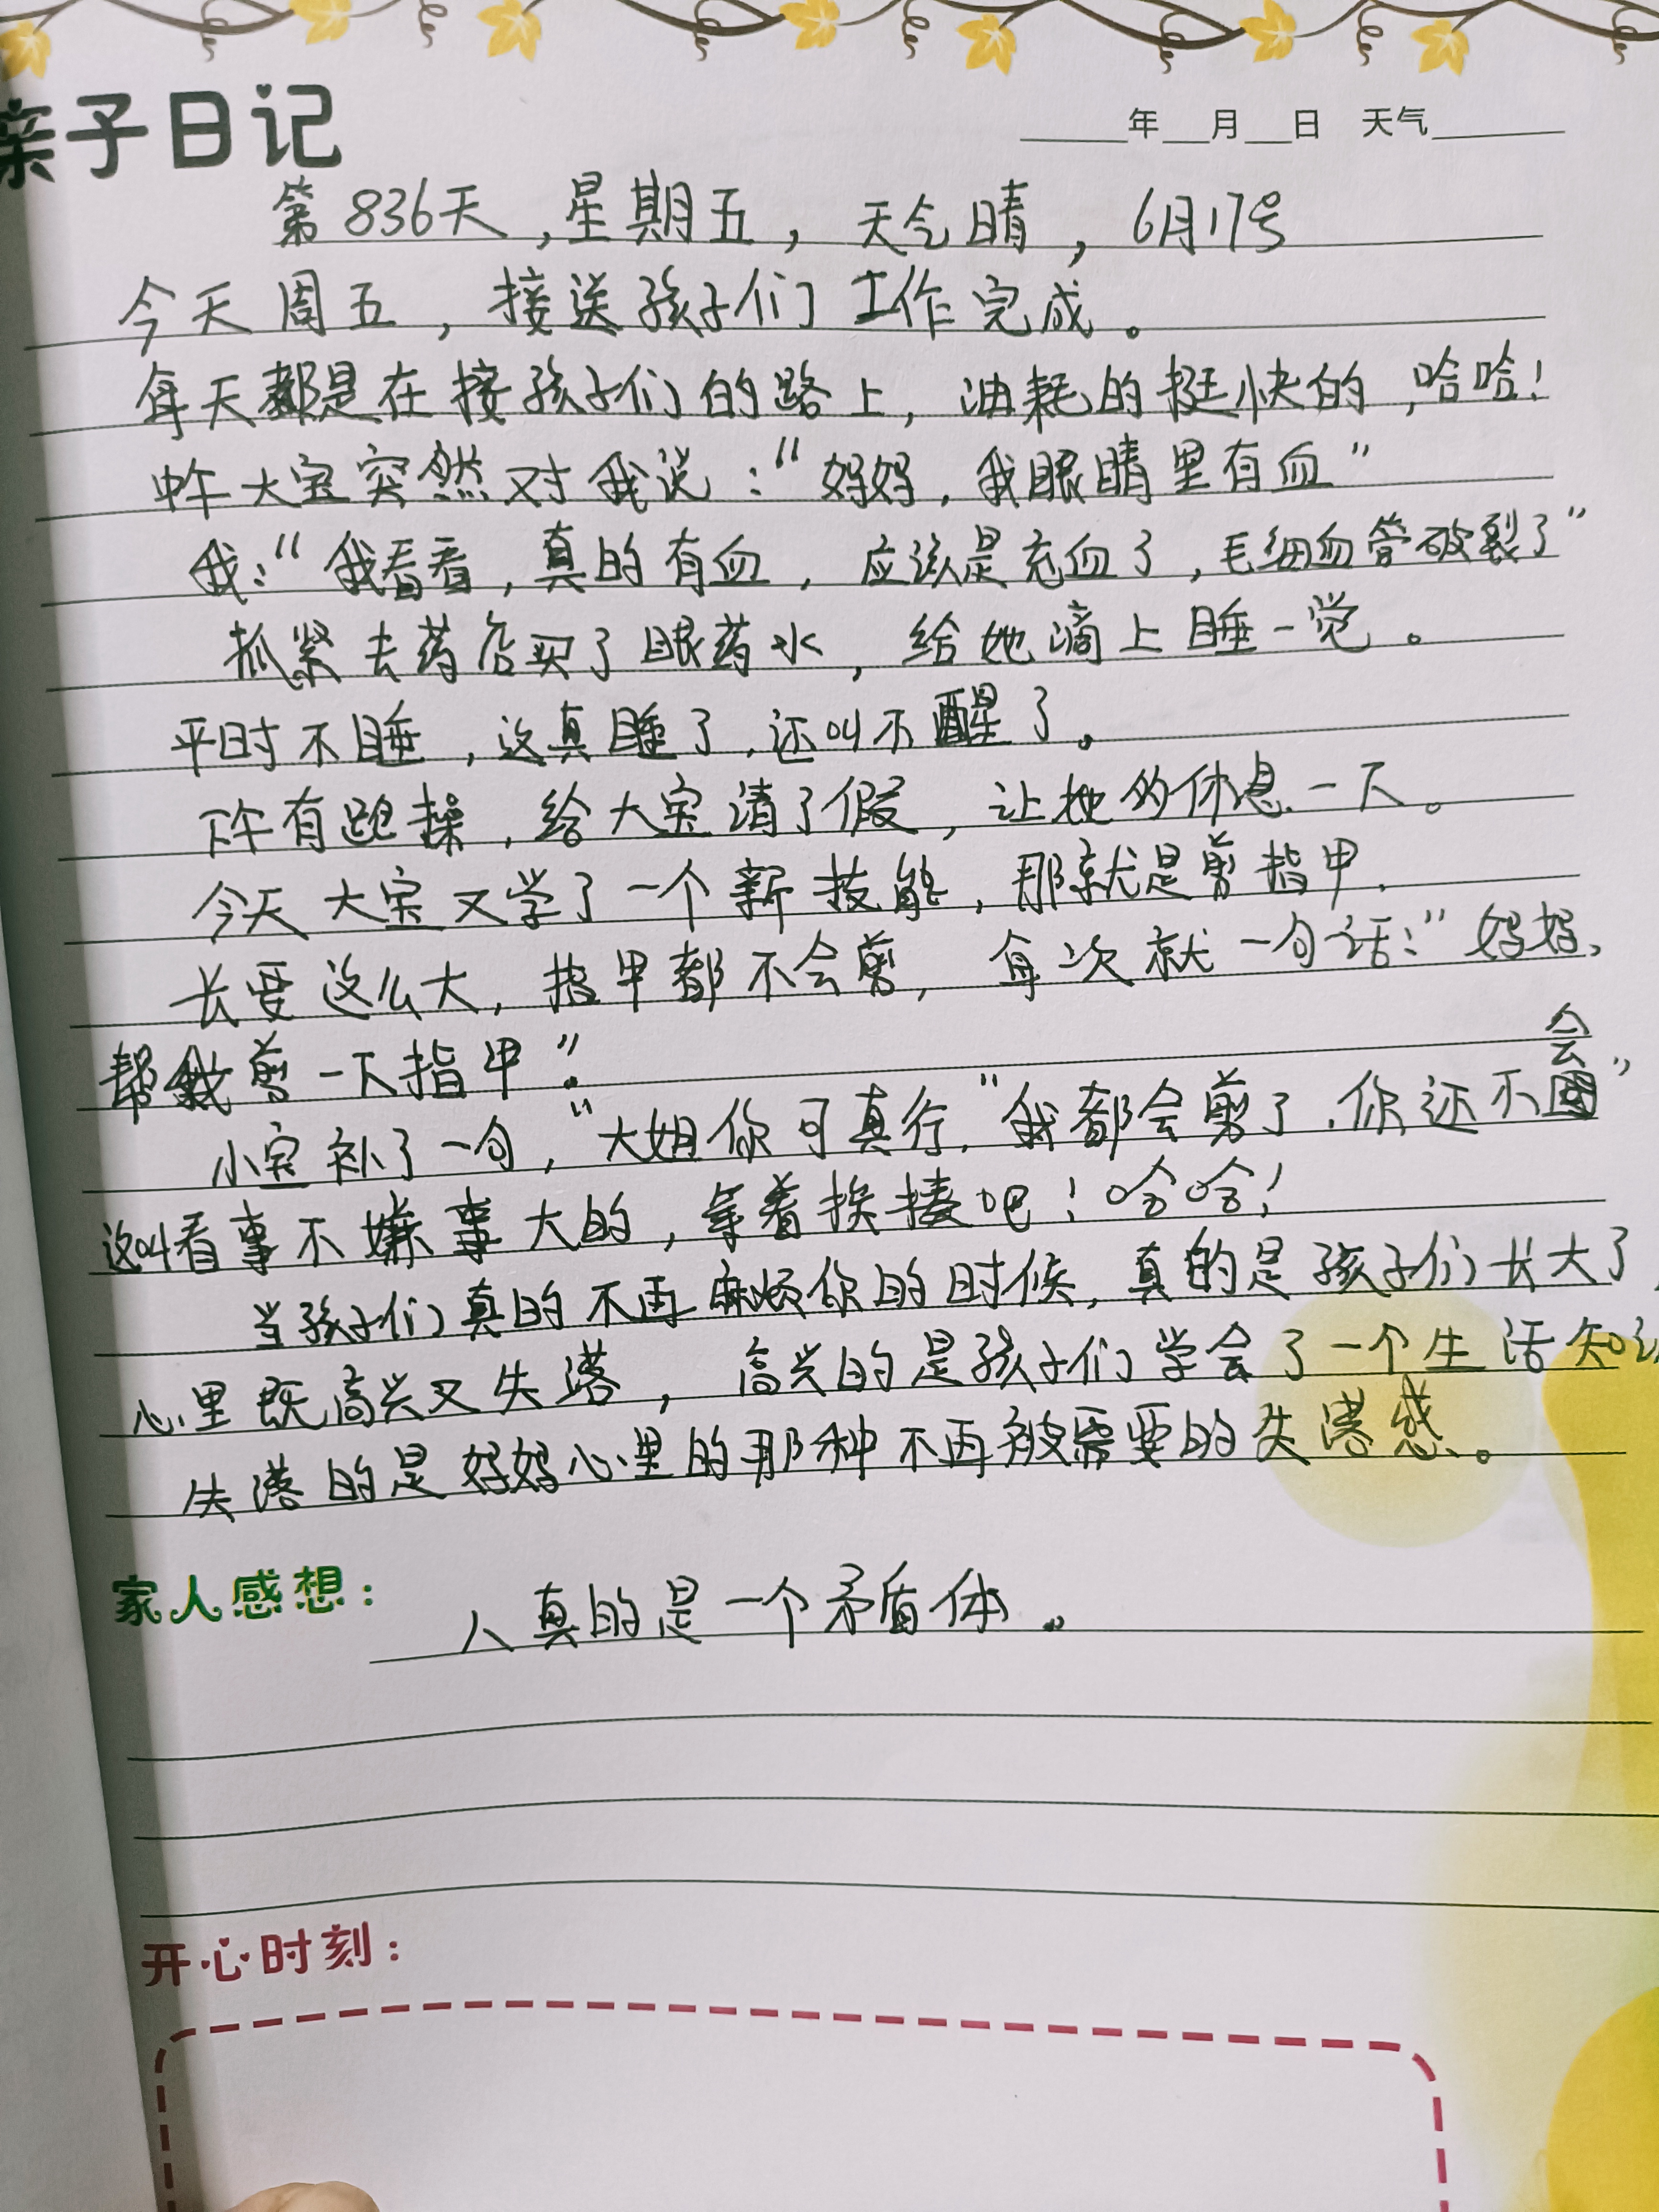 亲子日记
____年__月__日 天气____
第836天,星期五,天气晴,6月17号
今天周五,接送孩子们工作完成。
每天都是在接孩子们的路上,油耗的挺快的,哈哈!
中午大宝突然对我说:“妈妈,我眼睛里有血”
我:“我看看,真的有血,应该是充血了,毛细血管破裂了”
抓紧去药店买了眼药水,给她滴上睡一觉。
平时不睡,这真睡了,还叫不醒了。
下午有跑操,给大宝请了假,让她的休息一下。
今天大宝又学了一个新技能,那就是剪指甲.
长要这么大,指甲都不会剪,每次就一句话:“妈妈、
帮我剪一下指甲”.
小宝补了一句,“大姐你可真行,“我都会剪了.你还不会”
这叫看事不嫌事大的,等着挨揍吧!哈哈!
当孩子们真的不再麻烦你的时候,真的是孩子们长大了,
心里既高兴又失落,高兴的是孩子们学会了一个生活知识
失落的是妈妈心里的那种不再被需要的失落感。
家人感想:
人真的是一个矛盾体。
开心时刻: